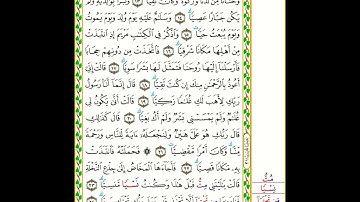 وَحَنَانًا مِّن لَّدُنَّا وَزَكَوٰةً وَكَانَ تَقِيًّا ١٣ وَبَرًّا بِوَٰلِدَيْهِ وَلَمْ
يَكُن جَبَّارًا عَصِيًّا ١٤ وَسَلَٰمٌ عَلَيْهِ يَوْمَ وُلِدَ وَيَوْمَ يَمُوتُ
وَيَوْمَ يُبْعَثُ حَيًّا ١٥ وَٱذْكُرْ فِى ٱلْكِتَٰبِ مَرْيَمَ إِذِ ٱنتَبَذَتْ
مِنْ أَهْلِهَا مَكَانًا شَرْقِيًّا ١٦ فَٱتَّخَذَتْ مِن دُونِهِمْ حِجَابًا
فَأَرْسَلْنَآ إِلَيْهَا رُوحَنَا فَتَمَثَّلَ لَهَا بَشَرًا سَوِيًّا ١٧ قَالَتْ إِنِّىٓ
أَعُوذُ بِٱلرَّحْمَٰنِ مِنكَ إِن كُنتَ تَقِيًّا ١٨ قَالَ إِنَّمَآ أَنَا۠ رَسُولُ
رَبِّكِ لِأَهَبَ لَكِ غُلَٰمًا زَكِيًّا ١٩ قَالَتْ أَنَّىٰ يَكُونُ لِى
غُلَٰمٌ وَلَمْ يَمْسَسْنِى بَشَرٌ وَلَمْ أَكُ بَغِيًّا ٢٠ قَالَ كَذَٰلِكِ
قَالَ رَبُّكِ هُوَ عَلَىَّ هَيِّنٌ وَلِنَجْعَلَهُۥٓ ءَايَةً لِّلنَّاسِ وَرَحْمَةً
مِّنَّا وَكَانَ أَمْرًا مَّقْضِيًّا ٢١ فَحَمَلَتْهُ فَٱنتَبَذَتْ
بِهِۦ مَكَانًا قَصِيًّا ٢٢ فَأَجَآءَهَا ٱلْمَخَاضُ إِلَىٰ جِذْعِ ٱلنَّخْلَةِ
قَالَتْ يَٰلَيْتَنِى مِتُّ قَبْلَ هَٰذَا وَكُنتُ نَسْيًا مَّنسِيًّا ٢٣
مُتُّ
نِسْيًا